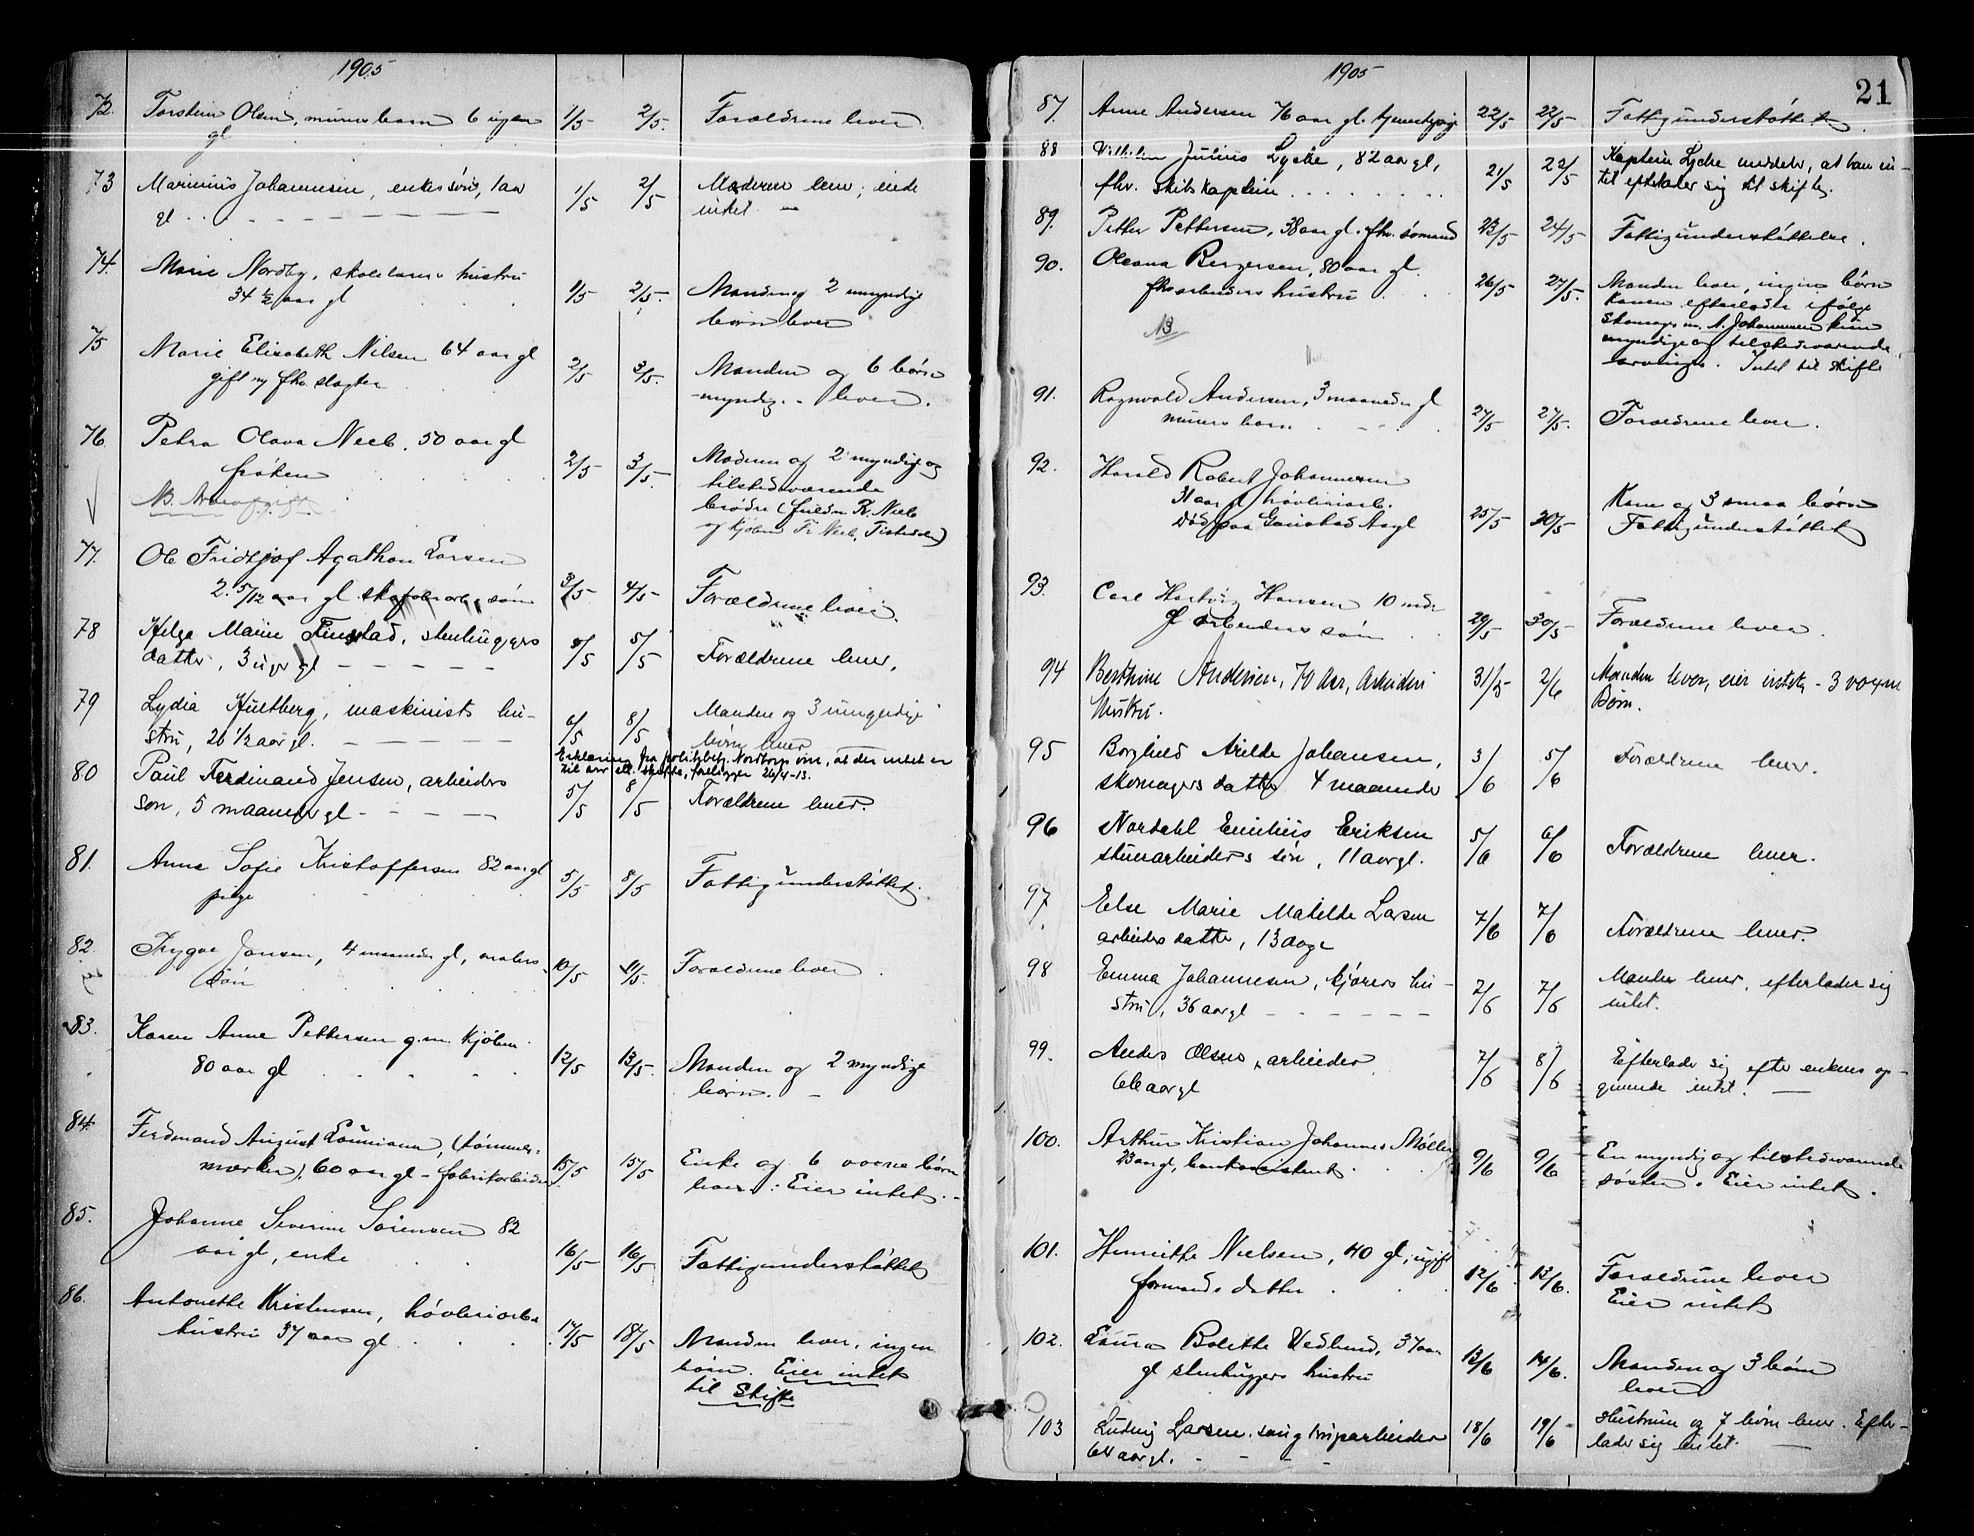 1905
72. Torstein Olsen, murers barn 6 uger 1/5 2/5. Forældrene lever.
gl
73 Marinius Johannesen, enkes søn, 1 aar 1/5 2/5 Moderen lever; eiede
gl intet. —
74. Marie Nordby, skolelærers hustru
34 ½ aar gl 1/5 2/5. Manden og 2 umyndige
børn lever
75 Marie Elisabeth Nilsen 64 aar gl 2/5 3/5. Manden og 6 børn
gift m fhv. slagter - myndig. - lever.
76. Petra Olava Neeb. 50 aar gl
frøken 2/5 3/5 Moderen og 2 myndige og
tilstedeværende
NB. Arveafgift brødre (
77. Ole Fridtjof Agathon Larsen
2. 5/12 aar gl søn 3/5 4/5 Forældrene lever.
78 Helga Marie Finstad, stenhuggers
datter, 3 uger gl 5/5 5/5 Forældrene lever.
79 Lydia Hultberg, maskinists hu- Manden og 3 umyndige
stru, 26 1/2 aar gl. 6/5 8/5 børn lever
Erklæring fra at der intet er
til foreligger 26/4-13.
80 Paul Ferdinand Jensen, arbeiders
søn, 5 maaneder gl 5/5 8/5 Forældrene lever.
81. Anne Sofie Kristoffersen 82 aar gl
pige 5/5 8/5 Fattigunderstøttet.
82. Trygve Jansen, 4 maaneder gl, malers
søn 10/5 11/5. Forældrene lever.
83. Karen Anne Pettersen g.m. kjøbm.
80 aar gl 12/5 13/5. Manden og 2 myndige
børn. —
84. Ferdinand August Laumann, (tømmer-
mærker), 60 aar gl - fabrikarbeider 15/5 15/5 Enke og 6 voxne børn
lever. Eier intet. -
85. Johanne Severine Sørensen 82
aar gl, enke 16/5 16/5 Fattigunderstøttet
86. Antonette Kristensen, høvleriarb.
hustru 37 aar gl 17/5 18/5 Manden lever, ingen
børn. Eier intet
til Skifte
1905
21
87. Anne Andersen 76 aar gl. tjenestepige 22/5 22/5 Fattigunderstøttet.
88 Vilhelm Julius Lyche, 82 aar gl, Kaptein Lyche meddeler, at han in-
fhv. skibskaptein 21/5 22/5 tet efterlader sig til skifte.
89. Petter Pettersen, 38 aar gl. fhv. sømand 23/5 24/5 Fattigunderstøttelse.
90. Oleava Bergersen, 80 aar gl.
fhv arbeiders hustru 26/5 27/5. Manden lever, ingen børn
NB Konen efterlader ifølge
Skomagerm. A. Johannesen kun
myndige og tilstedeværende
arvinger. Intet til skifte
91. Ragnvald Andersen, 3 maaneder gl
murers barn 27/5 27/5. Forældrene lever.
92. Harald Robert Johannesen
31 aar gl høvleriarb.
Død paa Gaustad Asyl 25/5 30/5 Kone og 3 smaa børn
Fattigunderstøttet
93. Carl Hartvig Hansen 10 mdr
gl arbeiders søn 29/5 30/5 Forældrene lever.
94 Berthine Andersen, 70 Aar, Arbeiders 31/5 2/6 Manden lever, eier intet - 3 voxne
Hustru. Børn.
95 Borghild Arilde Johansen, 3/6 5/6 Forældrene lever.
skomagers datter 4 maaneder
96 Nordahl Emilius Eriksen 5/6 6/6 Forældrene lever.
stuerarbeiders søn, 11 aar gl.
97. Else Marie Matilde Larsen 7/6 7/6 Forældrene lever.
arbeiders datter, 13 dage
98 Emma Johannesen, kjørers hu- 7/6 7/6 Manden lever, efterlader sig
stru, 36 aar gl intet.
99. Anders Olsen, arbeider 7/6 8/6 Efterlader sig efter enkens op-
66 aar gl givende intet. —
100. Arthur Kristian Johannes Møller
23 aar gl, bankassistent 9/6 9/6 En myndig og tilstedeværende
søster. Eier intet.
101. Henriette Nielsen, 40 gl, ugift
formands datter 12/6 13/6. Forældrene lever
Eier intet
102. Laura Bolette Vedlund, 37 aar
gl stenhuggers hustru 13/6 14/6. Manden og 3 børn
lever
103 Ludvig Larsen, saugbrugsarbeider 18/6 19/6 Hustruen og 7 børn lever. Efter-
64 aar gl. lader sig intet. —